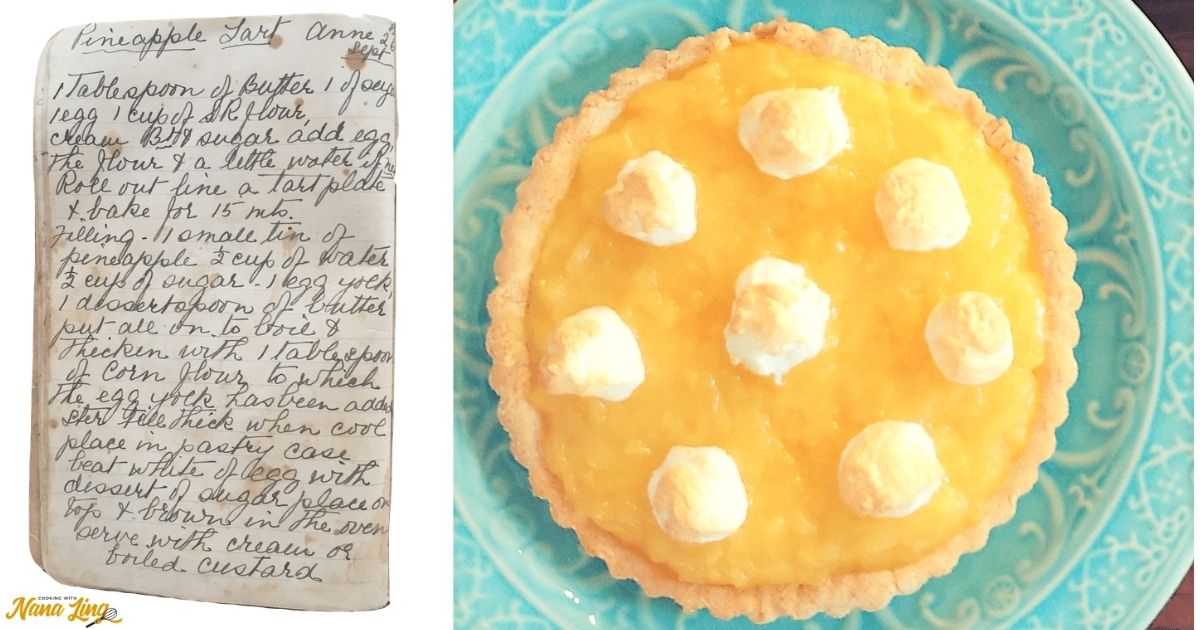 Pineapple Tart Anne
Sept
1 Tablespoon of Butter 1 of
1 egg 1 cup of S R flour,
cream B & sugar add egg,
the flour & a little water if
Roll out line a tart plate
& bake for 15 mts.
Filling - 1 small tin of
pineapple ½ cup of water
½ cup of sugar - 1 egg yolk,
1 dessertspoon of butter
put all on to boil &
thicken with 1 tablespoon
of corn flour to which
the egg yolk has been added
stir till thick when cool
place in pastry case,
beat white of egg with
dessert of sugar place on
top & brown in the oven
serve with cream or
boiled custard
COOKING WITH
Nana Ling